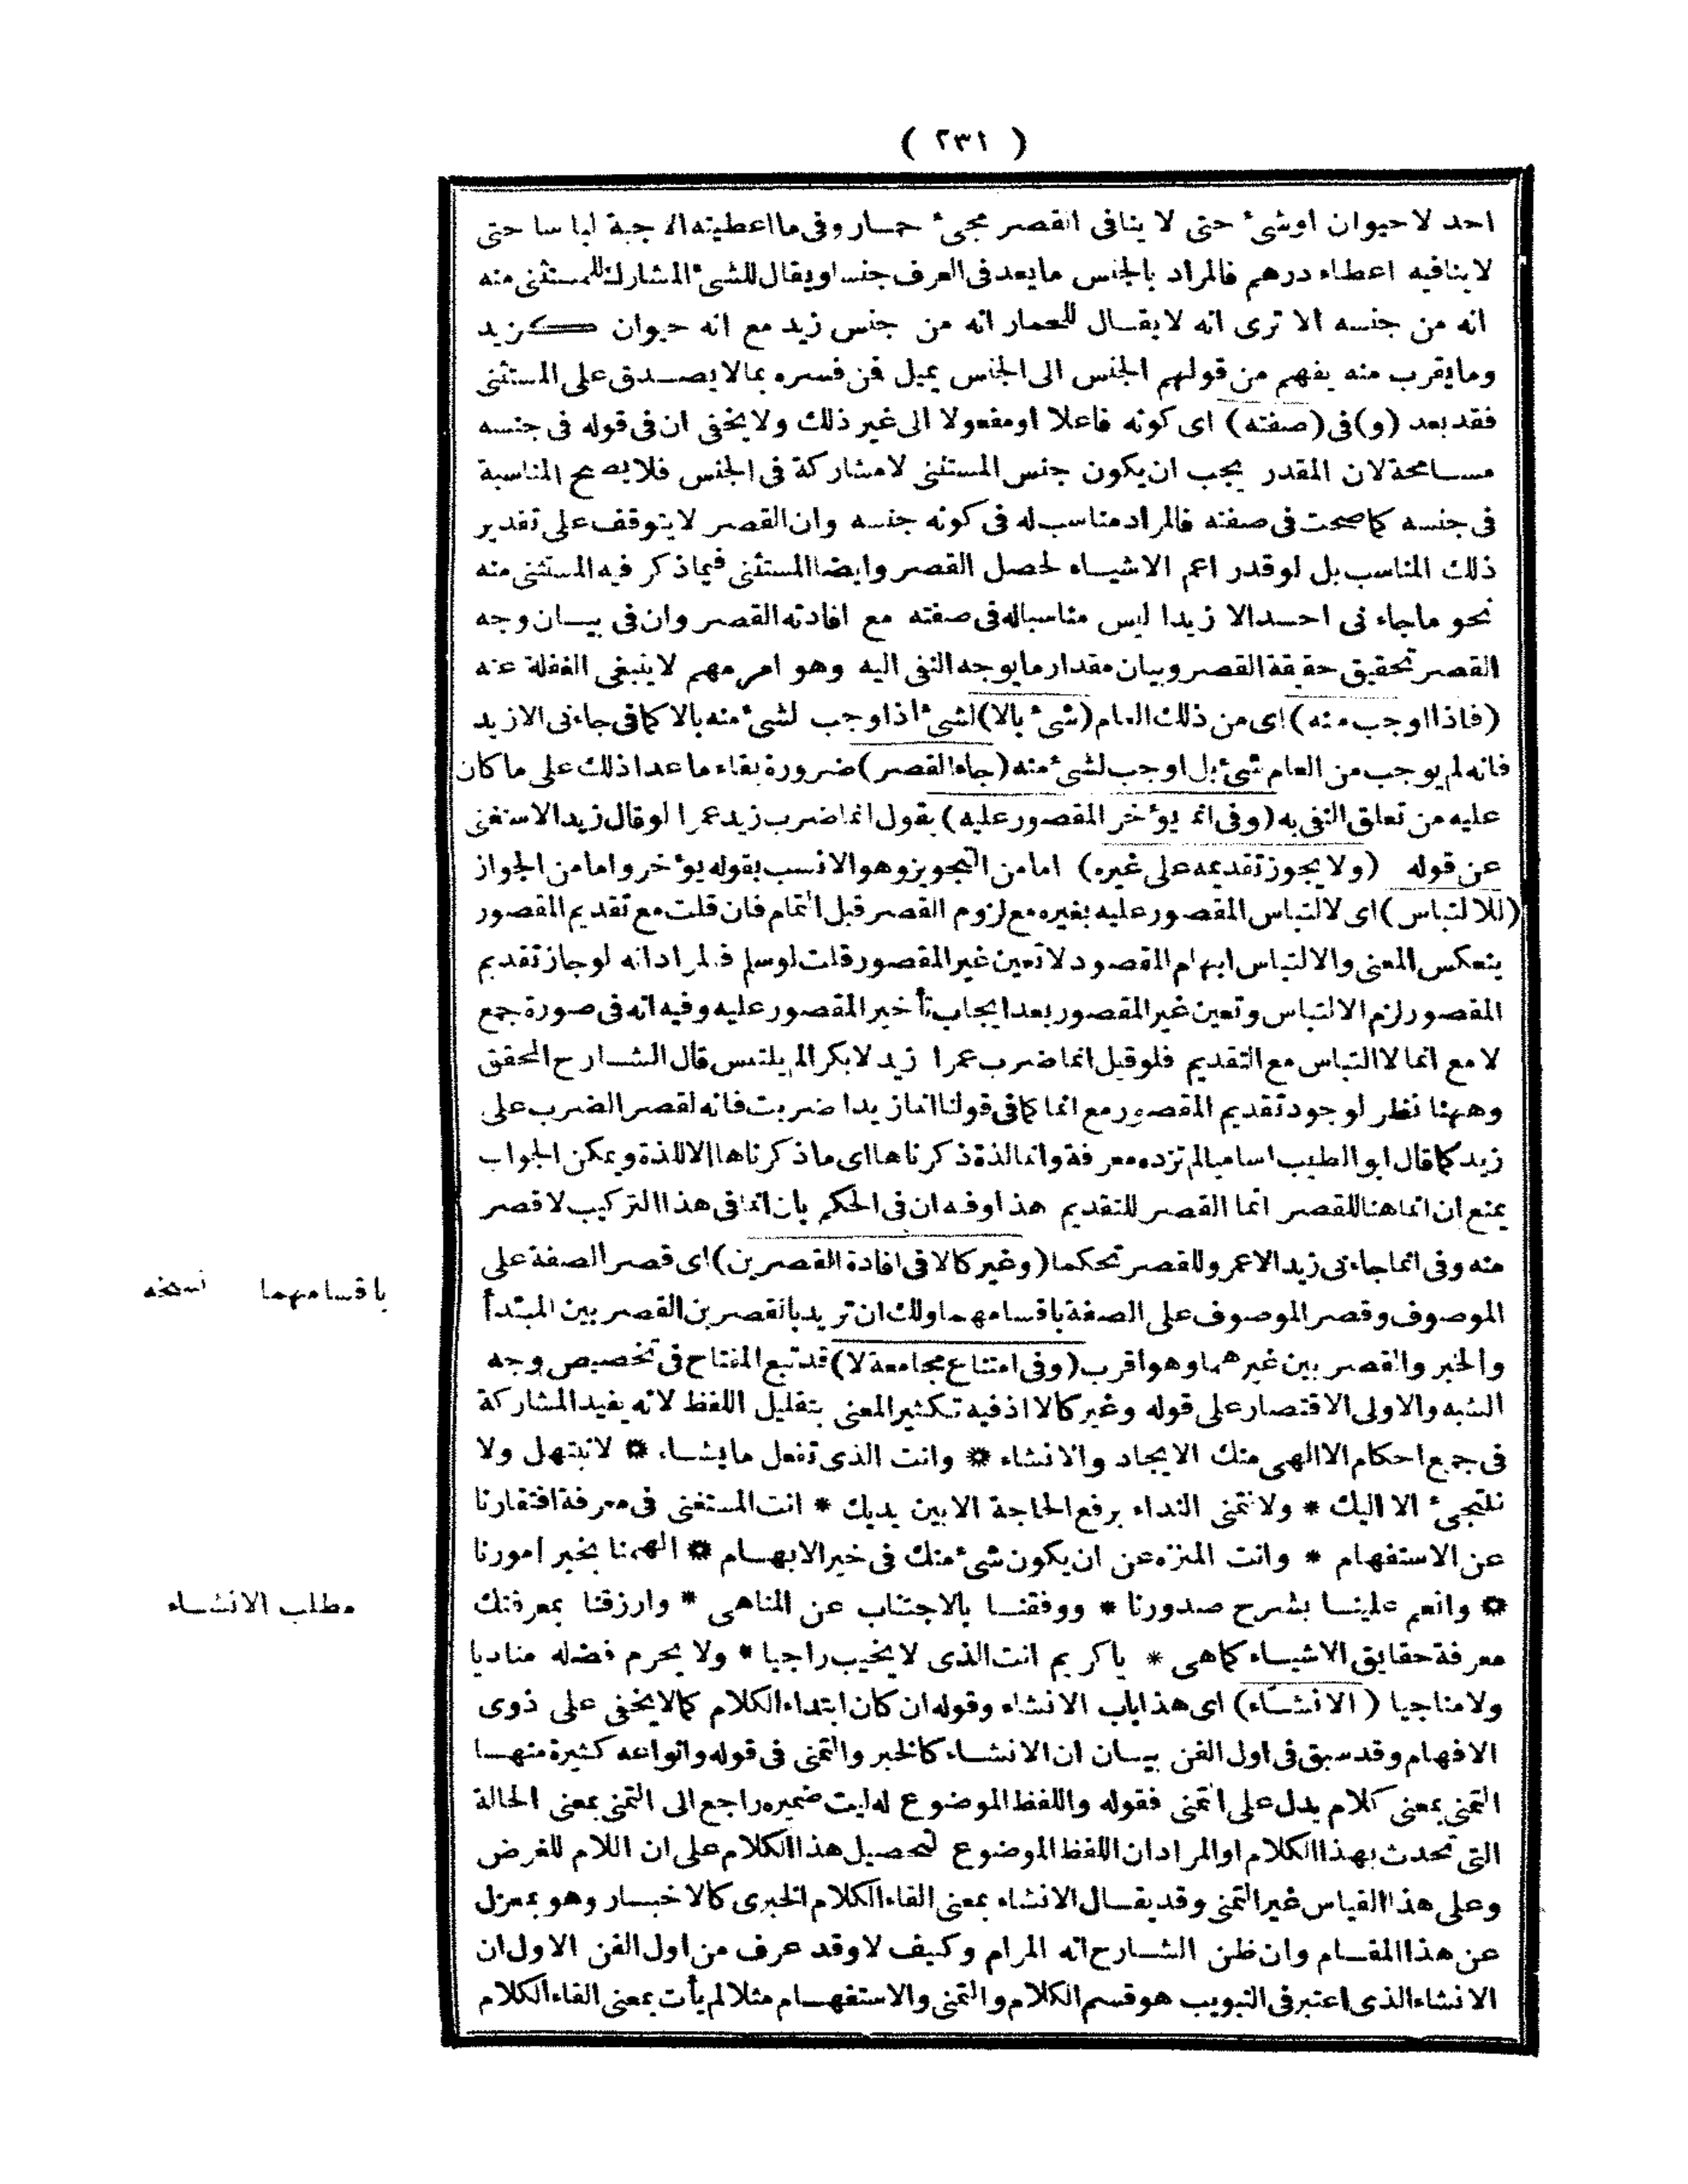 ( ٢٣١ )
احد لا حيوان اوشىٔ حتى لا ينافى القصر مجىٔ حمار وفى ما اعطيته الا جبة لباسا حتى
لا ينافيه اعطاء درهم فالمراد بالجنس ما يعد فى العرف جنسا ويقال للشىٔ المشارك للمستثنى منه
انه من جنسه الا ترى انه لا يقال للحمار انه من جنس زيد مع انه حيوان كزيد
وما يقرب منه يفهم من قولهم الجنس الى الجنس يميل فمن فسره بما لا يصدق على المستثنى
فقد بعد (و)فى (صفته) اى كونه فاعلا او مفعولا الى غير ذلك ولا يخفى ان فى قوله فى جنسه
مسامحة لان المقدر يجب ان يكون جنس المستثنى لا مشاركة فى الجنس فلا يصح المناسبة
فى جنسه كما صحت فى صفته فالمراد مناسب له فى كونه جنسه وان القصر لا يتوقف على تقدير
ذلك المناسب بل لو قدر اعم الاشياء لحصل القصر وايضا المستثنى فيما ذكر فيه المستثنى منه
نحو ما جاءنى احد الا زيدا ليس مناسبا له فى صفته مع افادته القصر وان فى بيان وجه
القصر تحقيق حقيقة القصر وبيان مقدار ما يوجه النفى اليه وهو امر مهم لا ينبغى الغفلة عنه
(فاذا اوجب منه) اى من ذلك العام (شىٔ بالا) لشىٔ اذا وجب لشىٔ منه بالا كما فى جاءنى الا زيد
فانه لم يوجب من العام شىٔ بل اوجب لشىٔ منه (جاء القصر) ضرورة بقاء ما عدا ذلك على ما كان
عليه من تعلق النفى به (وفى انما يؤخر المقصور عليه) بقول انما ضرب زيد عمرا لو قال زيد الاستغنى
عن قوله (ولا يجوز تقديمه على غيره) اما من التجويز وهو الانسب بقوله يؤخر واما من الجواز
(للالتباس) اى لالتباس المقصور عليه بغيره مع لزوم القصر قبل اتمام فان قلت مع تقديم المقصور
ينعكس المعنى والالتباس ابهام المقصود لا تعين غير المقصور قلت لو سلم فالمراد انه لو جاز تقديم
المقصور لزم الالتباس وتعين غير المقصور بعد ايجاب تأخير المقصور عليه وفيه انه فى صورة جمع
لا مع انما لا التباس مع التقديم فلو قيل انما ضرب عمرا زيد لا بكرا لم يلتبس قال الشارح المحقق
وههنا نظر لوجود تقديم المقصور مع انما كما فى قولنا انما زيدا ضربت فانه لقصر الضرب على
زيد كما قال ابو الطيب اساميا لم تزده معرفة وانما لذة ذكرناها اى ما ذكرناها الا للذة ويمكن الجواب
بمنع ان انما هنا للقصر انما القصر للتقديم هذا وفيه ان فى الحكم بان انما فى هذا التركيب لا قصر
منه وفى انما جاءنى زيد الا عمرو للقصر تحكما (وغير كالا فى افادة القصرين) اى قصر الصفة على
الموصوف وقصر الموصوف على الصفة باقسامهما ولك ان تريد بالقصرين القصر بين المبتدأ
باقسامهما نسخه
والخبر والقصر بين غيرهما وهو اقرب (وفى امتناع مجامعة لا) قد تبع المفتاح فى تخصيص وجه
الشبه والاولى الاقتصار على قوله وغير كالا اذ فيه تكثير المعنى بتقليل اللفظ لانه يفيد المشاركة
فى جميع احكام الا الهى منك الايجاد والانشاء * وانت الذى تفعل ما يشاء * لا نبتهل ولا
نلتجىٔ الا اليك * ولا نتمنى النداء برفع الحاجة الا بين يديك * انت المستغنى فى معرفة افتقارنا
عن الاستفهام * وانت المنزه عن ان يكون شىٔ منك فى خير الابهام * الهمنا بخير امورنا
* وانعم علينا بشرح صدورنا * ووفقنا بالاجتناب عن المناهى * وارزقنا بمعرفتك
مطلب الانشاء
معرفة حقايق الاشياء كماهى * ياكريم انت الذى لا يخيب راجيا * ولا يحرم فضله مناديا
ولا مناجيا (الانشاء) اى هذا باب الانشاء وقوله ان كان ابتداء الكلام كما لا يخفى على ذوى
الافهام وقد سبق فى اول الفن بيان ان الانشاء كالخبر والتمنى فى قوله وانواعه كثيرة منها
التمنى بمعنى كلام يدل على اتمنى فقوله واللفظ الموضوع له ليت ضميره راجع الى التمنى بمعنى الحالة
التى تحدث بهذا الكلام او المراد ان اللفظ الموضوع لتحصيل هذا الكلام على ان اللام للغرض
وعلى هذا القياس غير التمنى وقد يقال الانشاء بمعنى القاء الكلام الخبرى كالاخبار وهو بمعزل
عن هذا المقام وان ظن الشارح انه المرام وكيف لا وقد عرف من اول الفن الاول ان
الانشاء الذى اعتبر فى التبويب هو قسم الكلام والتمنى والاستفهام مثلا لم يأت بمعنى القاء الكلام